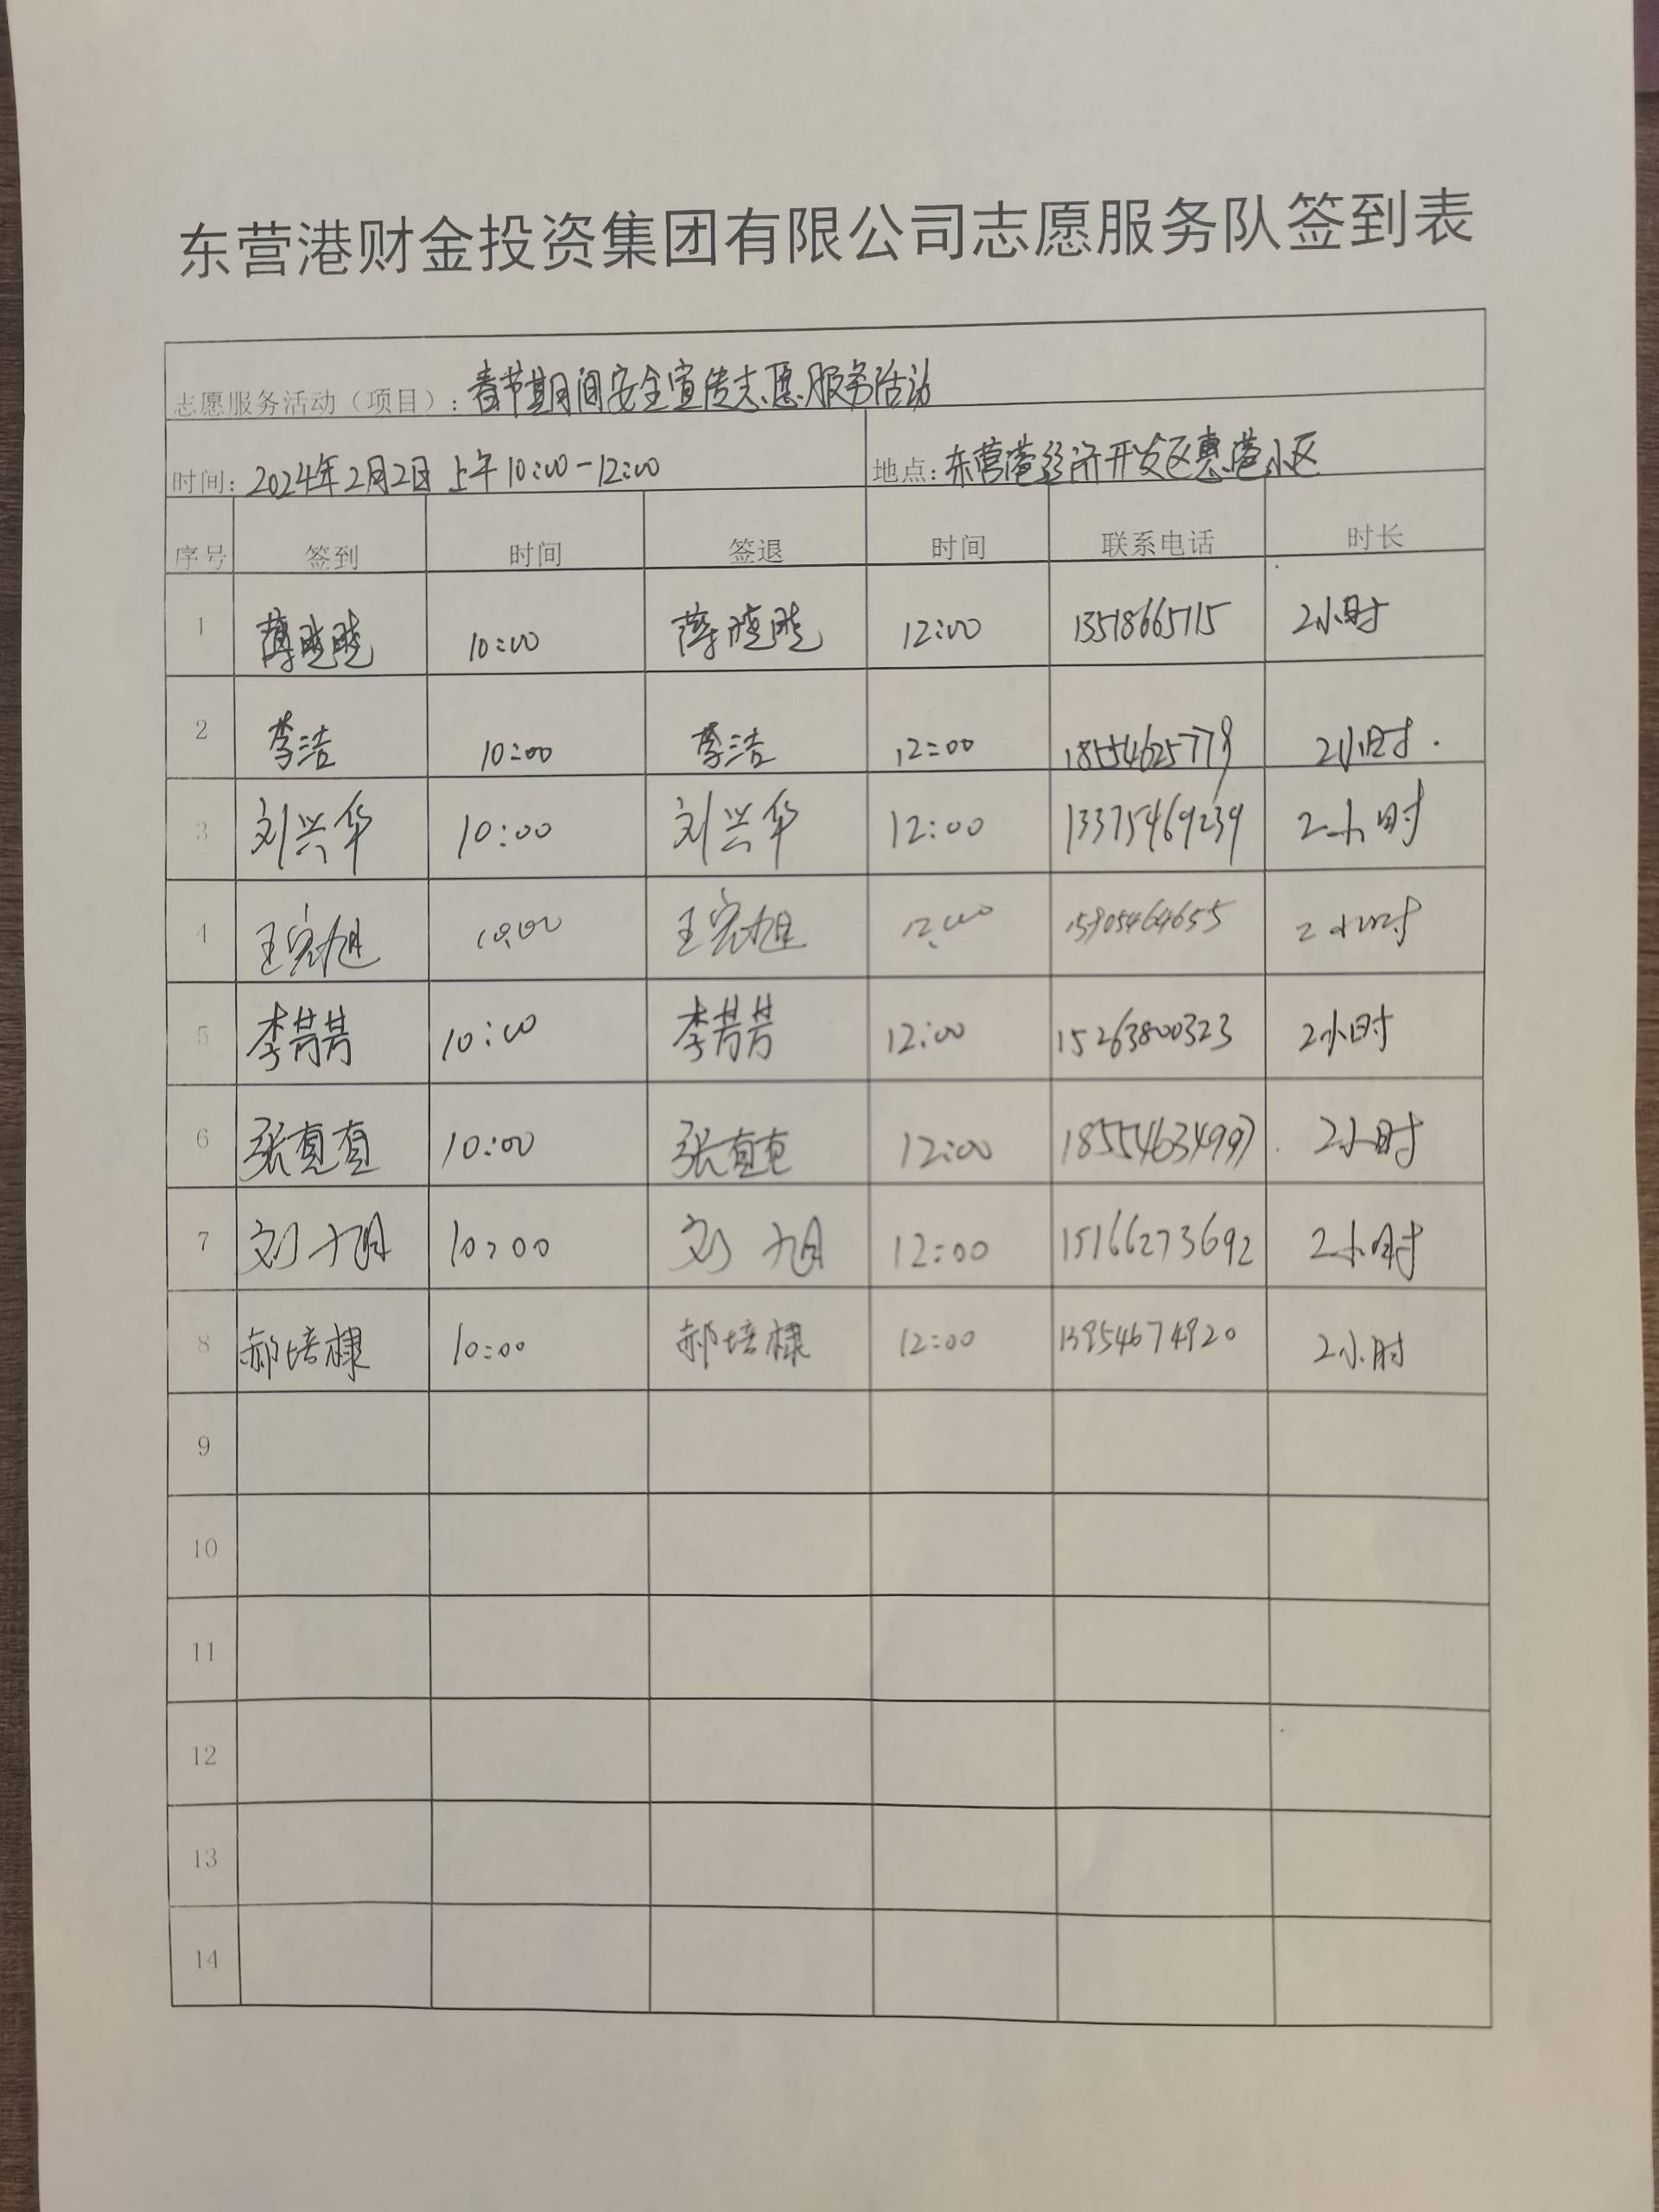 东营港财金投资集团有限公司志愿服务队签到表
志愿服务活动（项目）：春节期间安全宣传志愿服务活动
时间：2024年2月2日 上午10:00-12:00 地点：东营港经济开发区惠港小区
序号 签到 时间 签退 时间 联系电话 时长
1 薄晓晓 10:00 薄晓晓 12:00 13518665715 2小时
2 李洁 10:00 李洁 12:00 2小时.
3 刘兴华 10:00 刘兴华 12:00 13375469239 2小时
4 王宗旭 10:00 王宗旭 12:00 15905464655 2小时
5 李芳芳 10:00 李芳芳 12:00 15263800323 2小时
6 张真真 10:00 张真真 12:00 18554634997 2小时
7 刘旭 10:00 刘旭 12:00 15166273692 2小时
8 郝培棣 10:00 郝培棣 12:00 13954674920 2小时
9
10
11
12
13
14